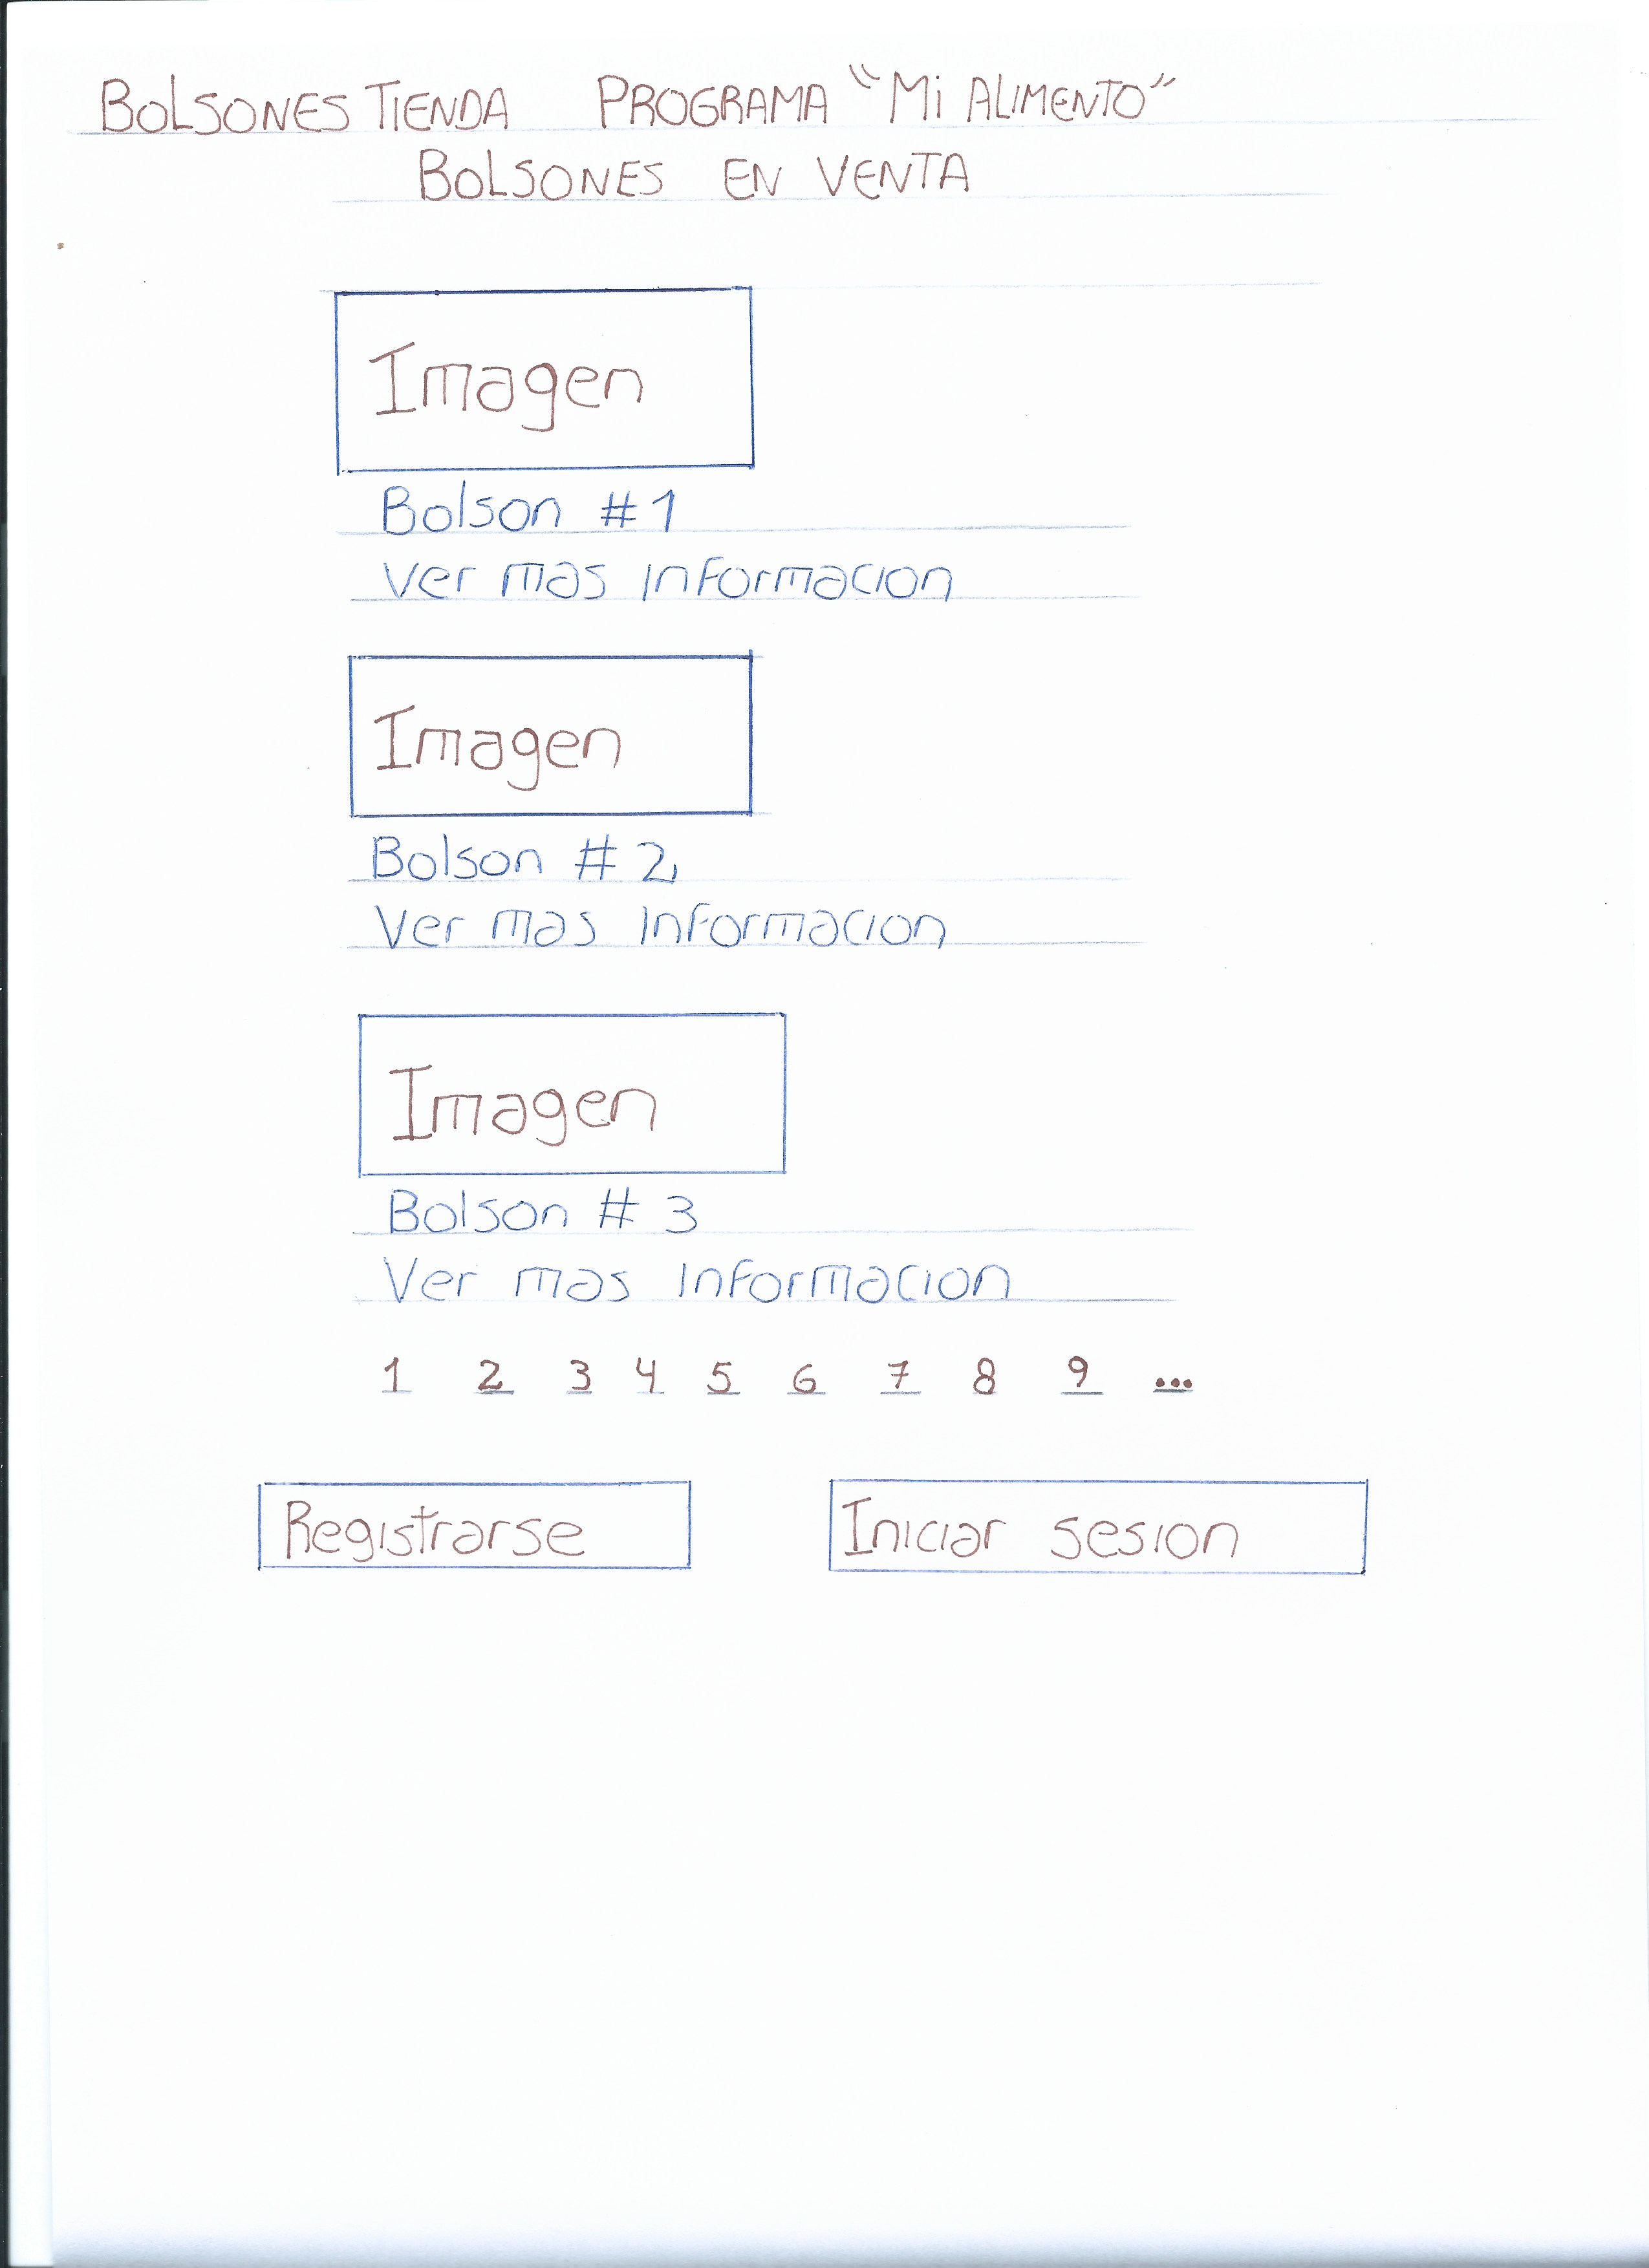 BOLSONES TIENDA PROGRAMA "Mi ALIMENTO"
BOLSONES EN VENTA
Imagen
Bolson #1
Ver mas informacion
Imagen
Bolson # 2
Ver mas informacion
Imagen
Bolson # 3
Ver mas informacion
1 2 3 4 5 6 7 8 9 ...
Registrarse Iniciar sesion